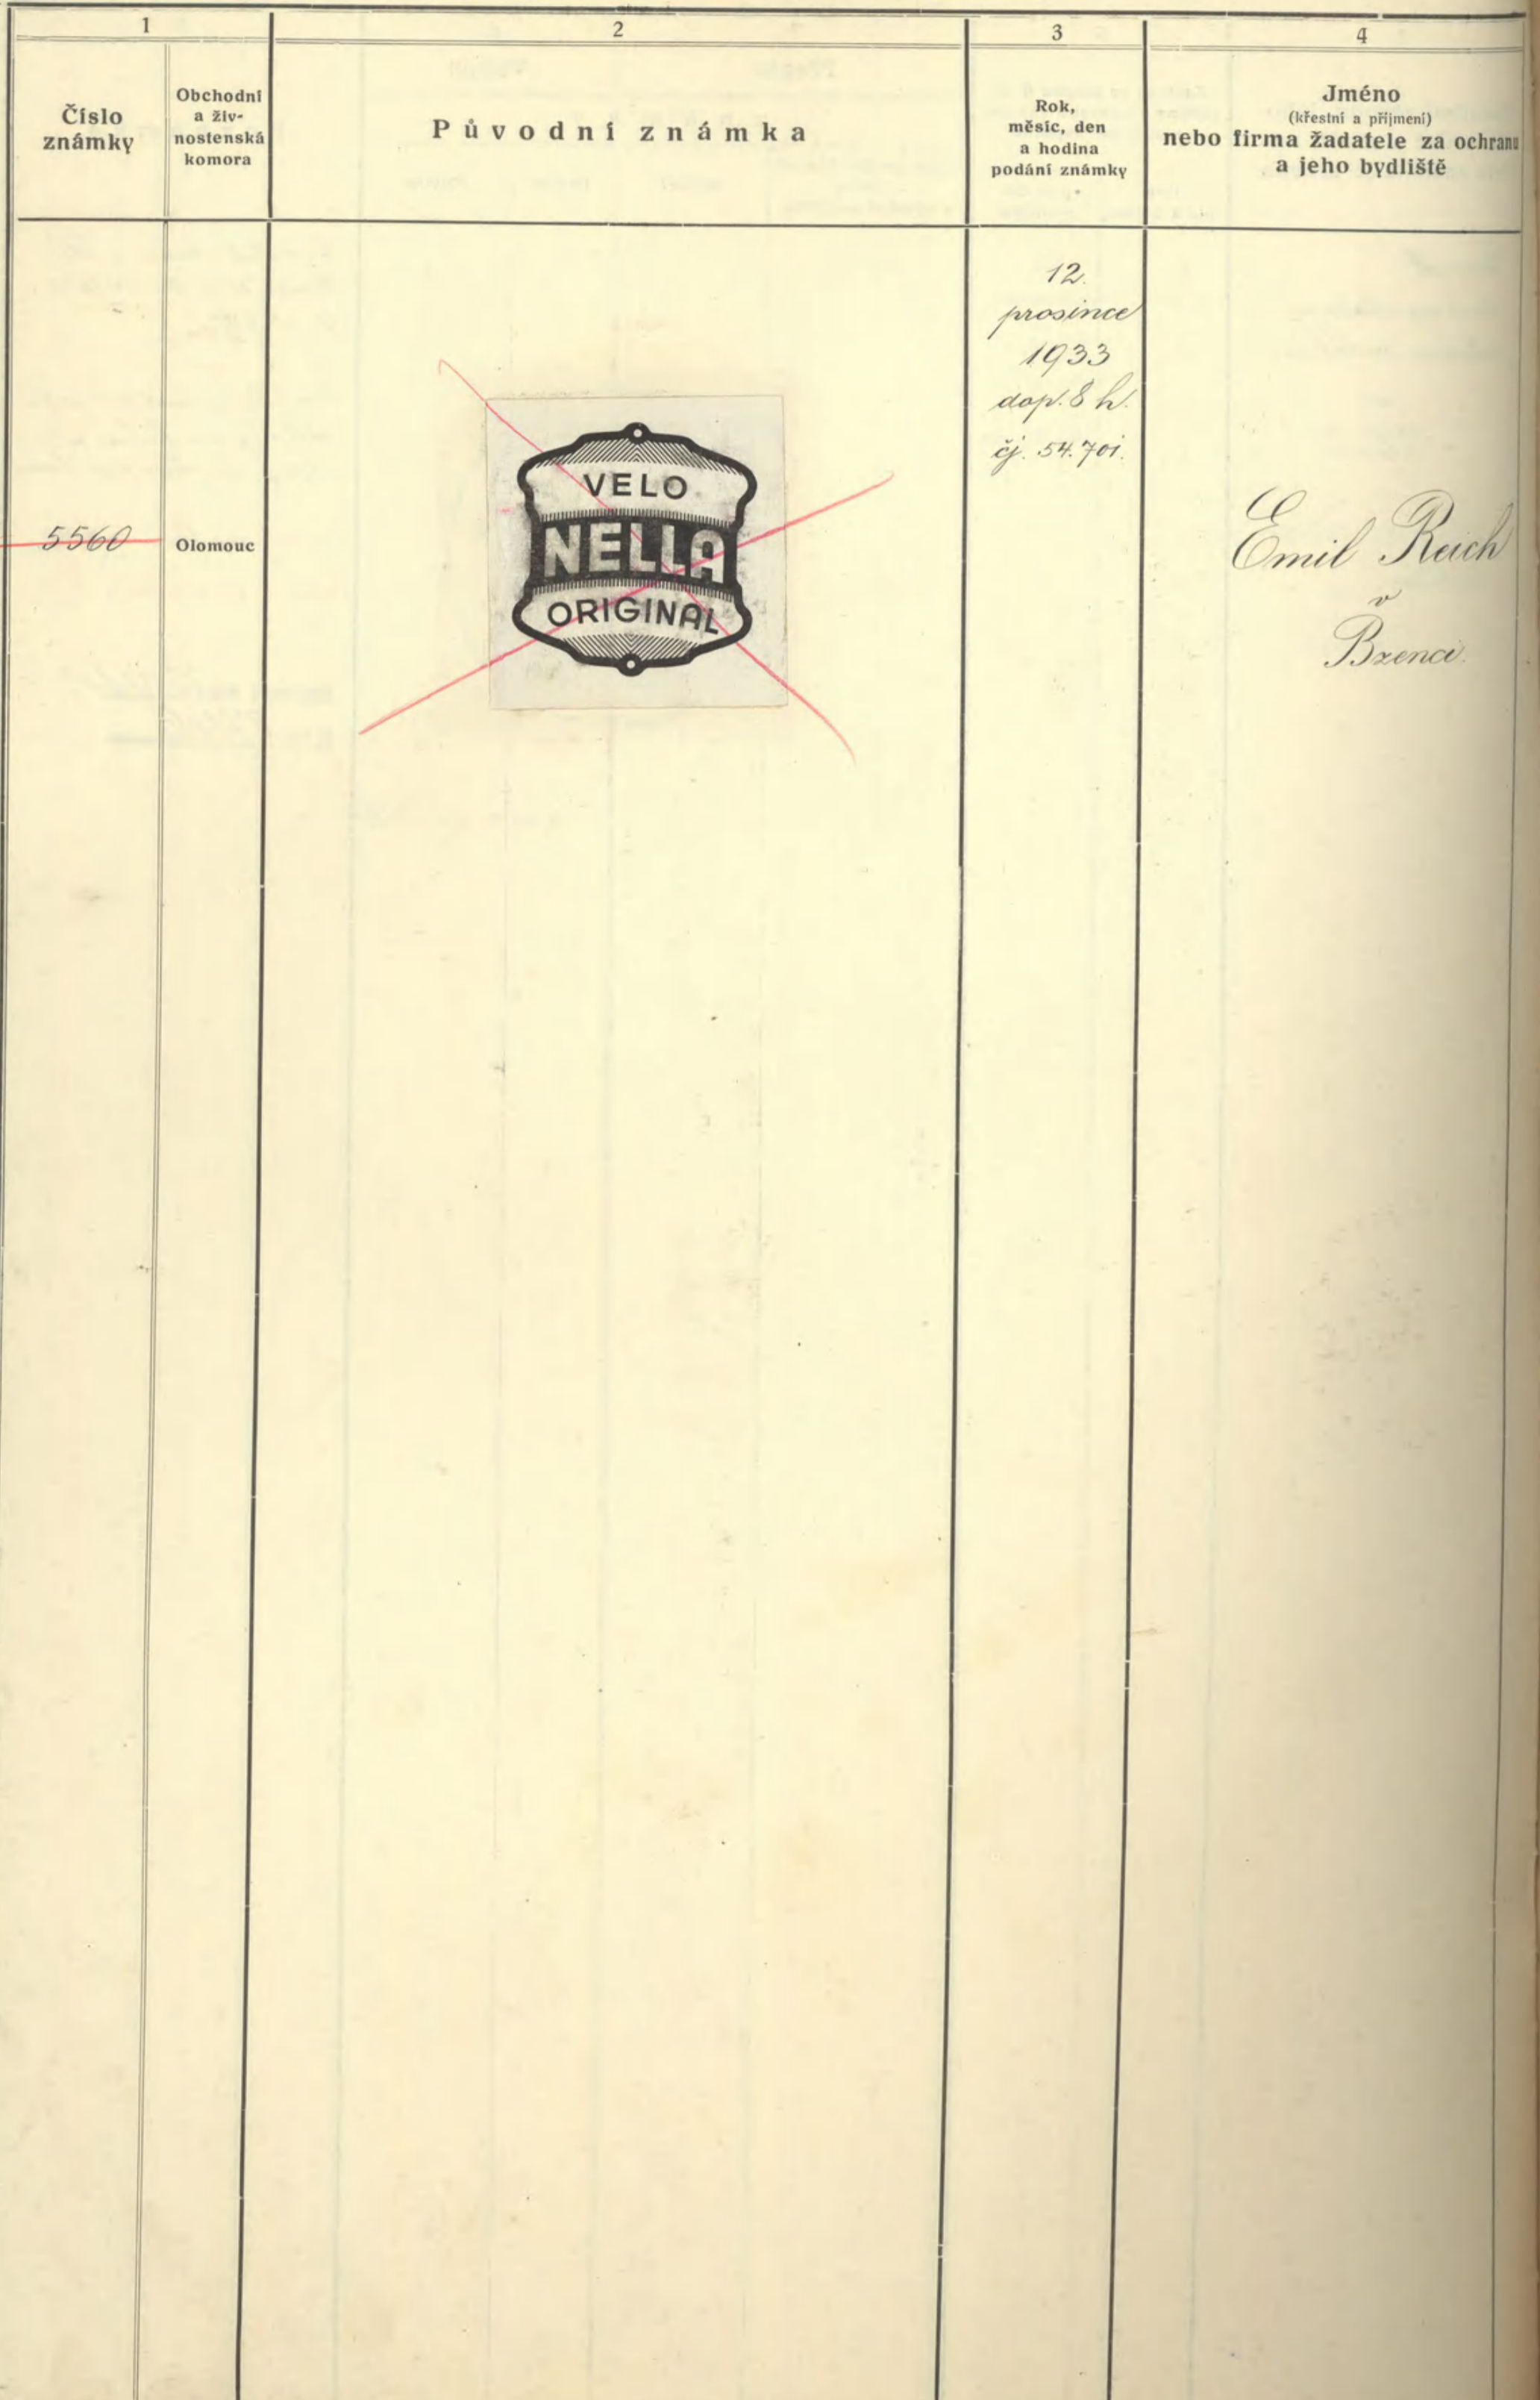 1
2
3
4
Číslo
známky
Obchodní
a živ-
nostenská
komora
Původní známka
Rok,
měsíc, den
a hodina
podání známky
Jméno
(křestní a příjmení)
nebo firma žadatele za ochranu
a jeho bydliště
5560
Olomouc
VELO
NELLA
ORIGINAL
12.
prosince
1933
dop. 8 h.
čj. 54.701.
Emil Reich
v
Bzenci.